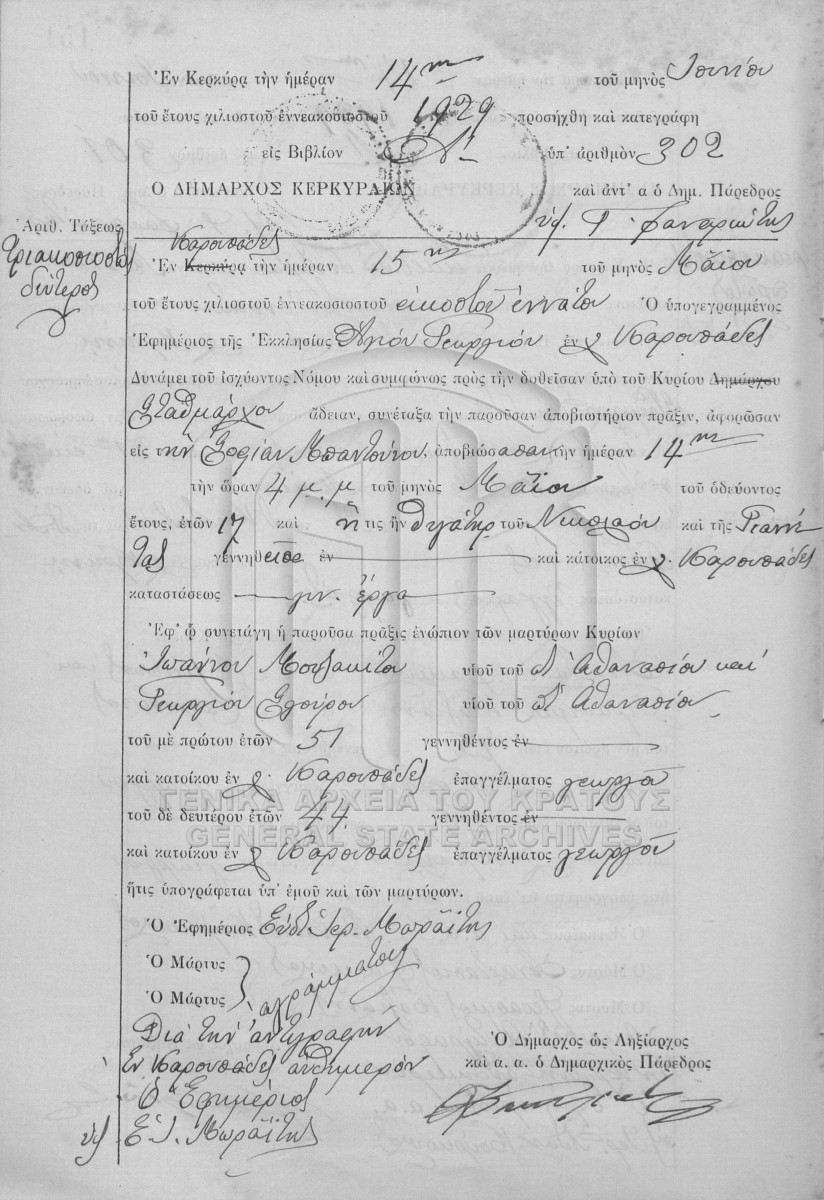 Ἐν Κερκύρᾳ τὴν ἡμέραν 14ην τοῦ μηνὸς Ἰουνίου
τοῦ ἔτους χιλιοστοῦ ἐννεακοσιοστοῦ 1929 προσήχθη καὶ κατεγράφη
εἰς Βιβλίον Α' ὑπ' ἀριθμὸν 302
Ο ΔΗΜΑΡΧΟΣ ΚΕΡΚΥΡΑΙΩΝ καὶ ἀντ' α ὁ Δημ. Πάρεδρος
υφ. Γ. Φαναριώτης
Ἀριθ. Τάξεως
τριακοσιοστὸς
δεύτερος
Καρουσάδες
Ἐν Κερκύρᾳ τὴν ἡμέραν 15ην τοῦ μηνὸς Μαΐου
τοῦ ἔτους χιλιοστοῦ ἐννεακοσιοστοῦ εἰκοστοῦ ἐννάτου Ὁ ὑπογεγραμμένος
Ἐφημέριος τῆς Ἐκκλησίας Ἁγίου Γεωργίου ἐν χ. Καρουσάδες
Δυνάμει τοῦ ἰσχύοντος Νόμου καὶ συμφώνως πρὸς τὴν δοθεῖσαν ὑπὸ τοῦ Κυρίου Δημάρχου
Σταθμάρχου ἄδειαν, συνέταξα τὴν παροῦσαν ἀποβιωτήριον πρᾶξιν, ἀφορῶσαν
εἰς τὴν Σοφίαν Μπαντούνου, ἀποβιώσασαν τὴν ἡμέραν 14ην
τὴν ὥραν 4 μ.μ τοῦ μηνὸς Μαΐου τοῦ ὁδεύοντος
ἔτους, ἐτῶν 17 καὶ ἥτις ἦν θυγάτηρ τοῦ Νικολάου καὶ τῆς Γιαννέ
τας γεννηθεῖσα ἐν καὶ κάτοικος ἐν χ. Καρουσάδες
καταστάσεως γυν. ἔργα
Ἐφ' ᾧ συνετάγη ἡ παροῦσα πρᾶξις ἐνώπιον τῶν μαρτύρων Κυρίων
Ἰωάννου Μουζακίτου υἱοῦ τοῦ Ἀθανασίου καὶ
Γεωργίου υἱοῦ τοῦ Ἀθανασίου
τοῦ μὲ πρώτου ἐτῶν 51 γεννηθέντος ἐν
καὶ κατοίκου ἐν χ. Καρουσάδες ἐπαγγέλματος γεωργοῦ
ΓΕΝΙΚΑ ΑΡΧΕΙΑ ΤΟΥ ΚΡΑΤΟΥΣ
τοῦ δὲ δευτέρου ἐτῶν 44 γεννηθέντος ἐν
GENERAL STATE ARCHIVES
καὶ κατοίκου ἐν χ Καρουσάδες ἐπαγγέλματος γεωργοῦ
ἥτις ὑπογράφεται ὑπ' ἐμοῦ καὶ τῶν μαρτύρων.
Ὁ Ἐφημέριος Ἰερ. Μωραΐτης
Ὁ Μάρτυς
Ὁ Μάρτυς ἀγράμματος
Διὰ τὴν ἀντιγραφὴν
Ἐν Καρουσάδες αὐθημερόν
Ὁ Ἐφημέριος
υφ Ε. Ι. Μωραΐτης
Ὁ Δήμαρχος ὡς Ληξίαρχος
καὶ α. α. ὁ Δημαρχικὸς Πάρεδρος